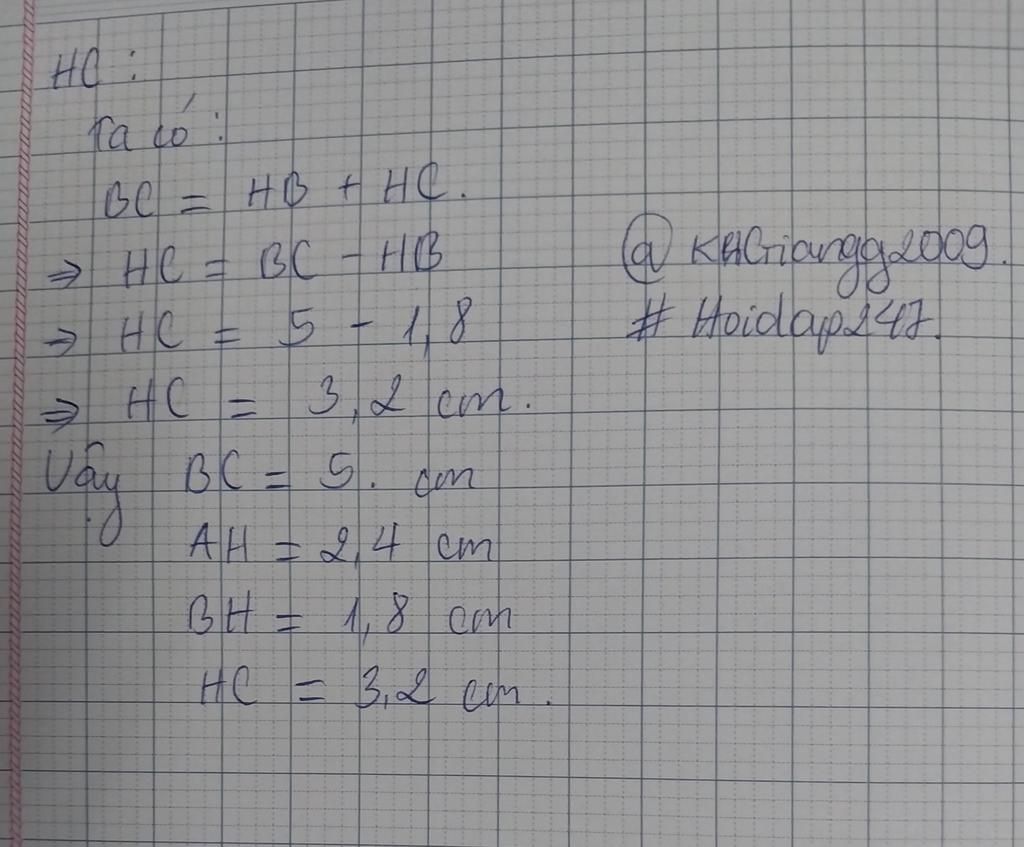 HC :
Ta có :
BC = HB + HC.
⇒ HC = BC - HB
@ KHGiangg2009.
⇒ HC = 5 - 1,8
# Hoidap247.
⇒ HC = 3,2 cm.
Vậy BC = 5. cm
AH = 2,4 cm
BH = 1,8 cm
HC = 3,2 cm.